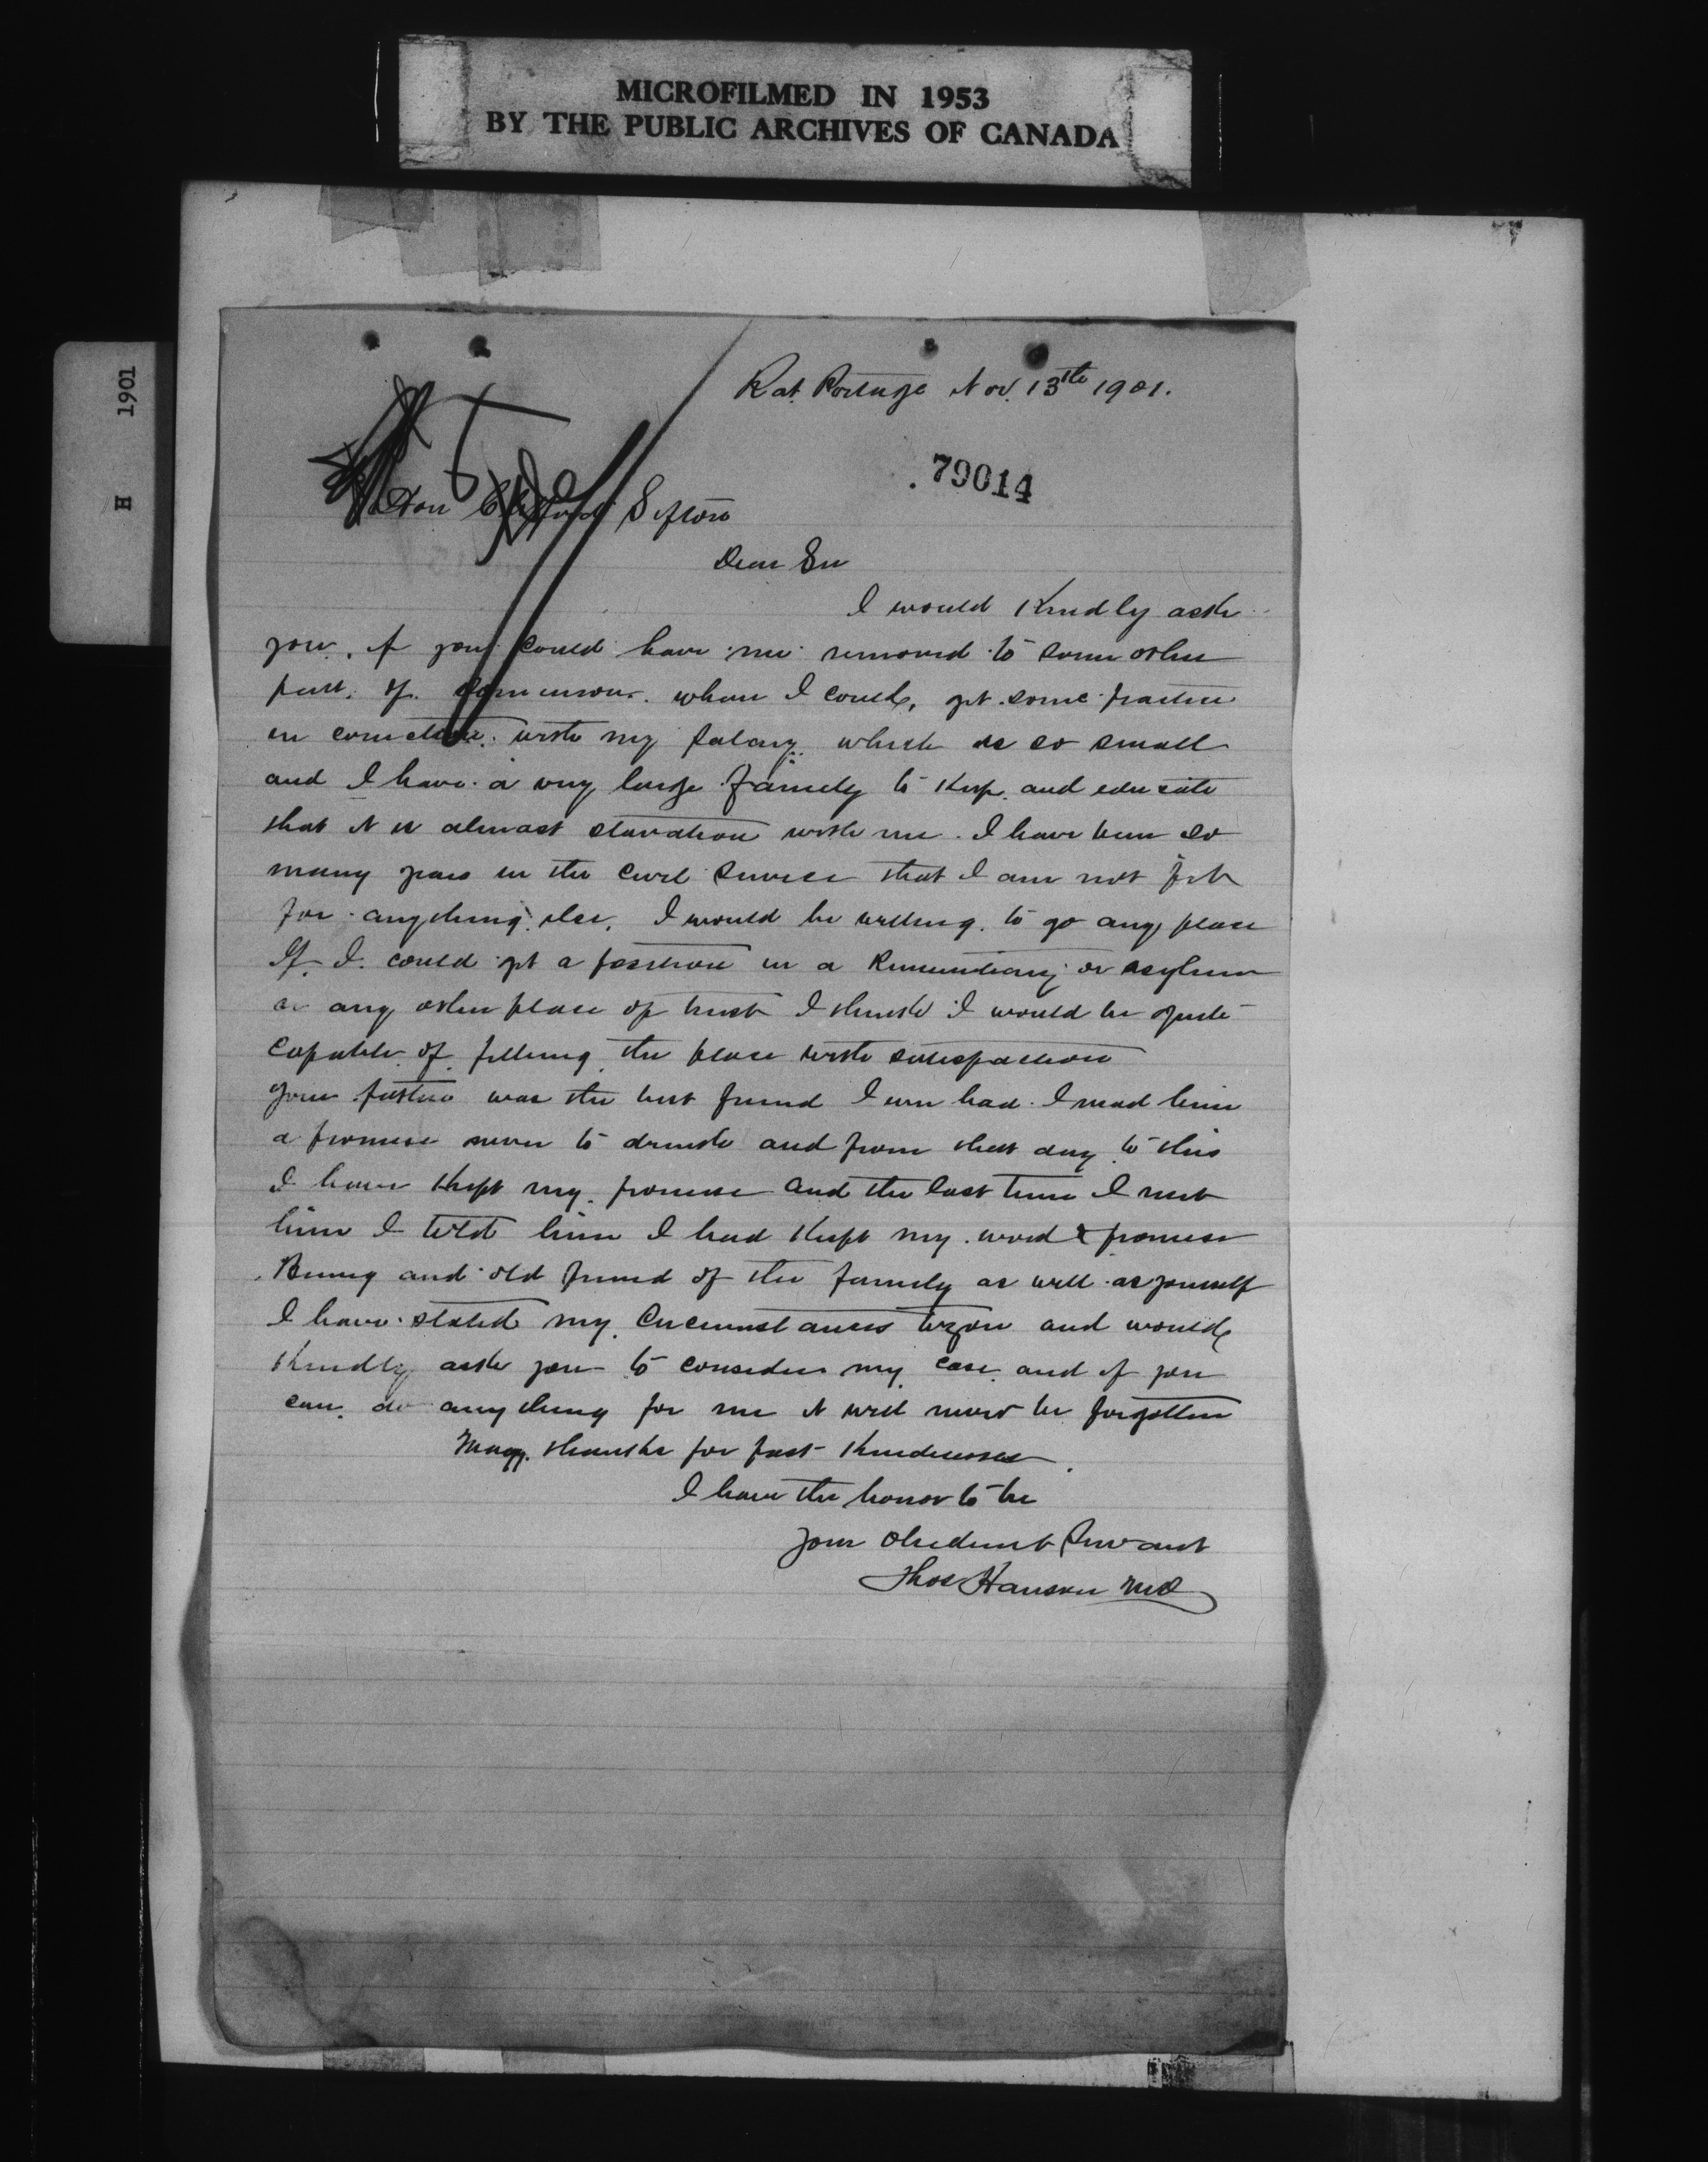 MICROFILMED IN 1953
BY THE PUBLIC ARCHIVES OF CANADA
H 1901
Rat Portage Nov. 13th 1901.
79014
Hon Clifford Sifton
Dear Sir
I would Kindly ask
you, if you could have me removed to some other
part of Dominion where I could, get some practice
in conection with my Salary which is so small
and I have a very large family to Keep and educate
that it is almost starvation with me. I have been so
many years in the Civil Service that I am not fit
for anything else. I would be willing to go any place
If I could get a position in a Penitentiary or asylum
or any other place of trust I think I would be quite
capable of filling the place with satisfaction
Your father was the best friend I ever had. I mad him
a promise never to drink and from that day to this
I have Kept my promise and the last time I met
him I told him I had Kept my word & promise
Being and old friend of the family as well as yourself
I have stated my Circumstances to you and would
Kindly ask you to consider my case and if you
can do anything for me it will never be forgotten
Many thanks for past Kindnesses.
I have the honor to be
Your Obedient Servant
Thos Hanson MD